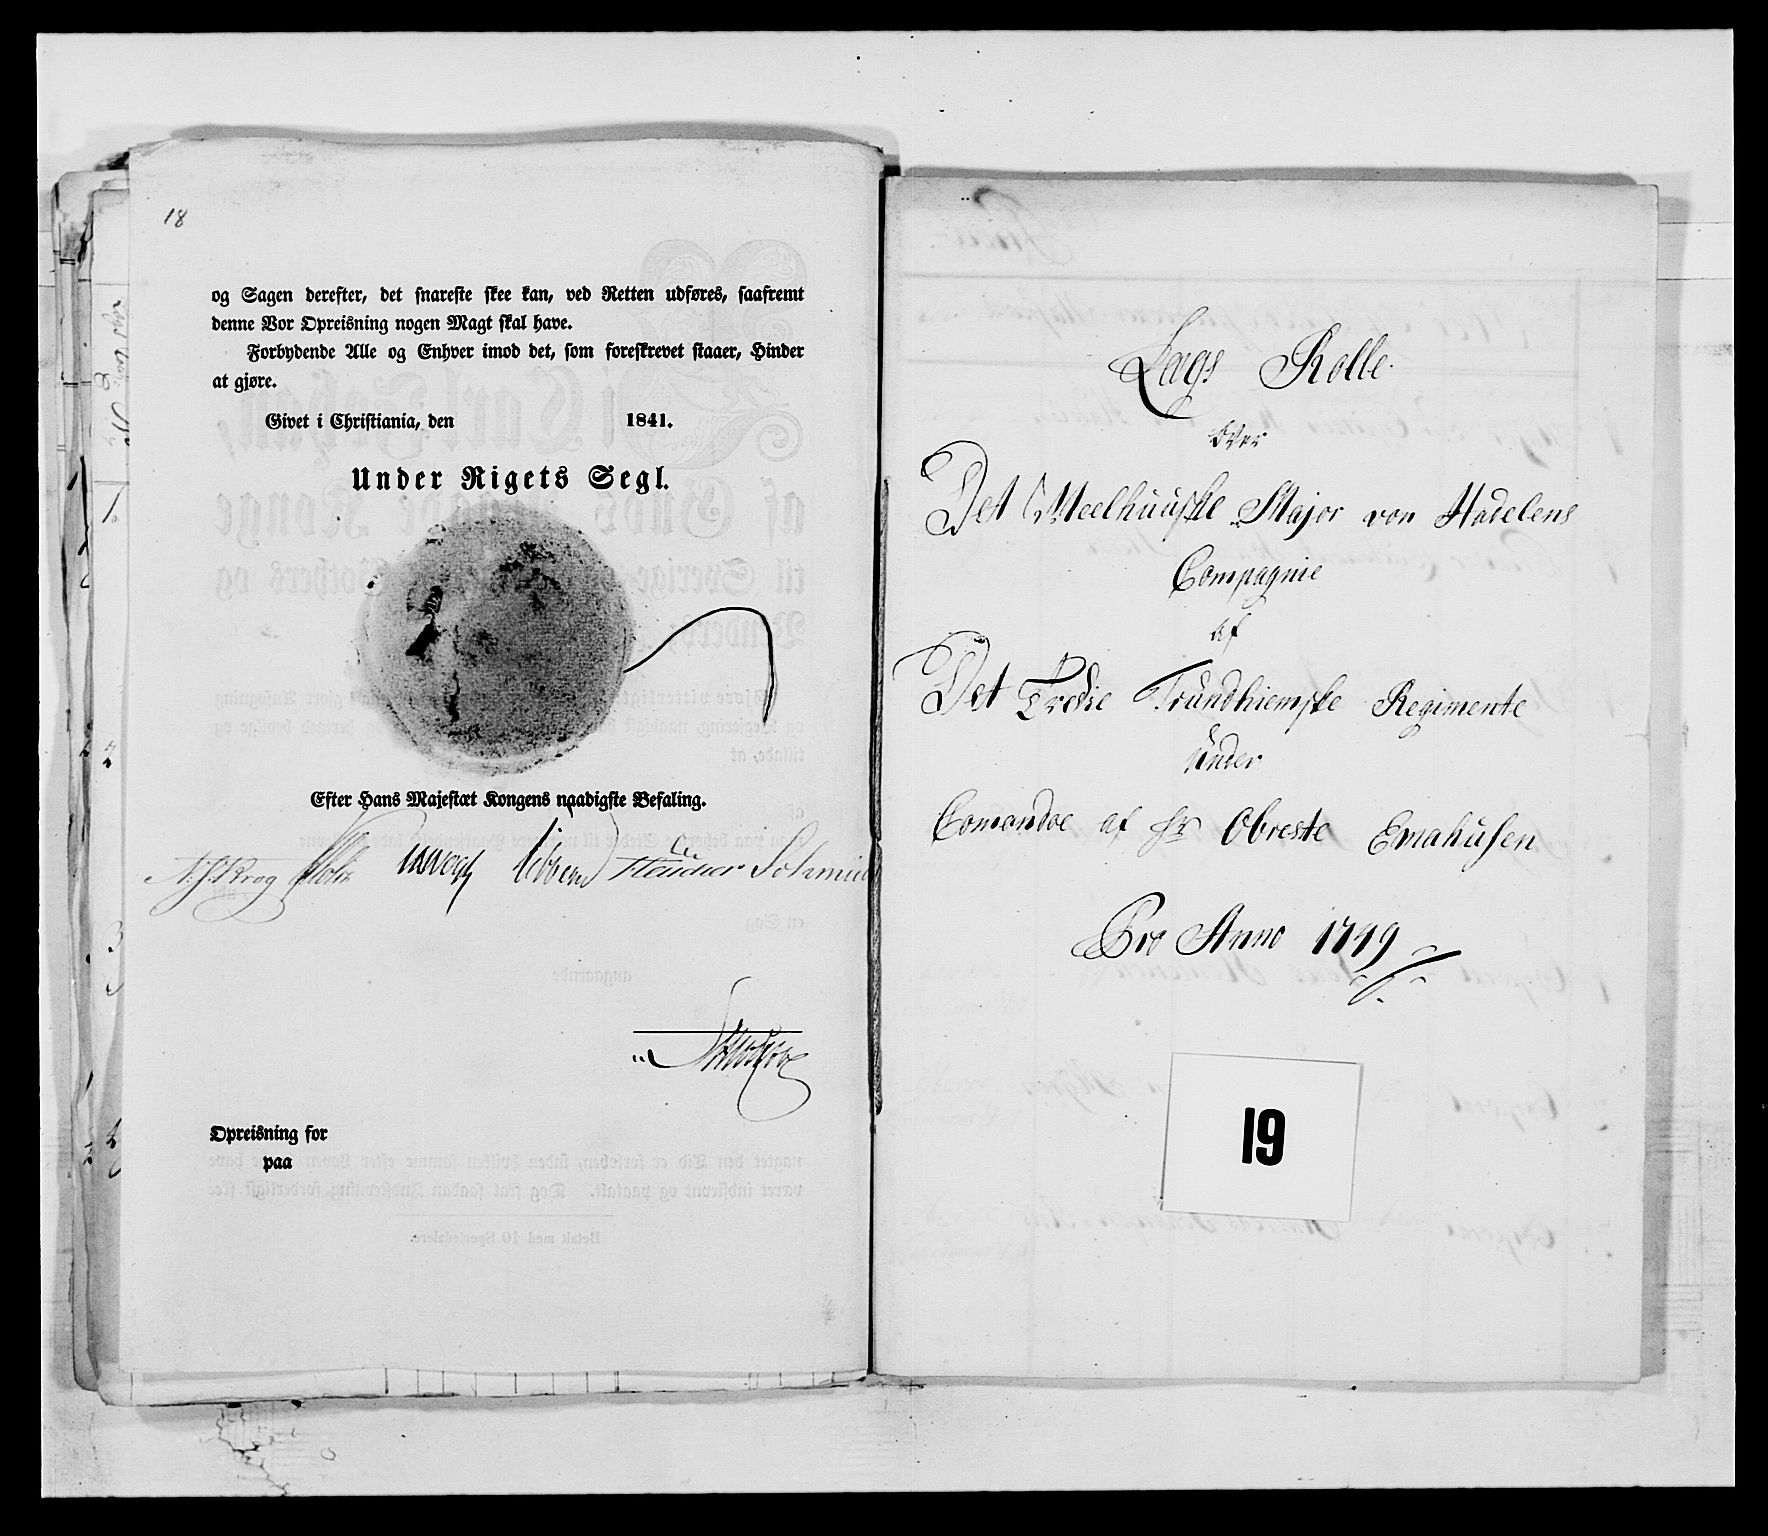 18
og Sagen derefter, det snareste skee kan, ved Retten udføres, saafremt
denne Vor Opreisning nogen Magt skal have.
Forbydende Alle og Enhver imod det, som foreskrevet staaer, Hinder
at gjøre.
Givet i Christiania, den 1841.
Under Rigets Segl.
Efter Hans Majestæt Kongens naadigste Befaling.
Krog Schmidt
Opreisning for
paa
Lags Rolle.
over
Det Meelhuuske Major von Hadelens
Compagnie
af
Det Tredie Trundhiemske Regimente
under
Comandoe af Hr Obreste Emahusen
Pro Anno 1749
19